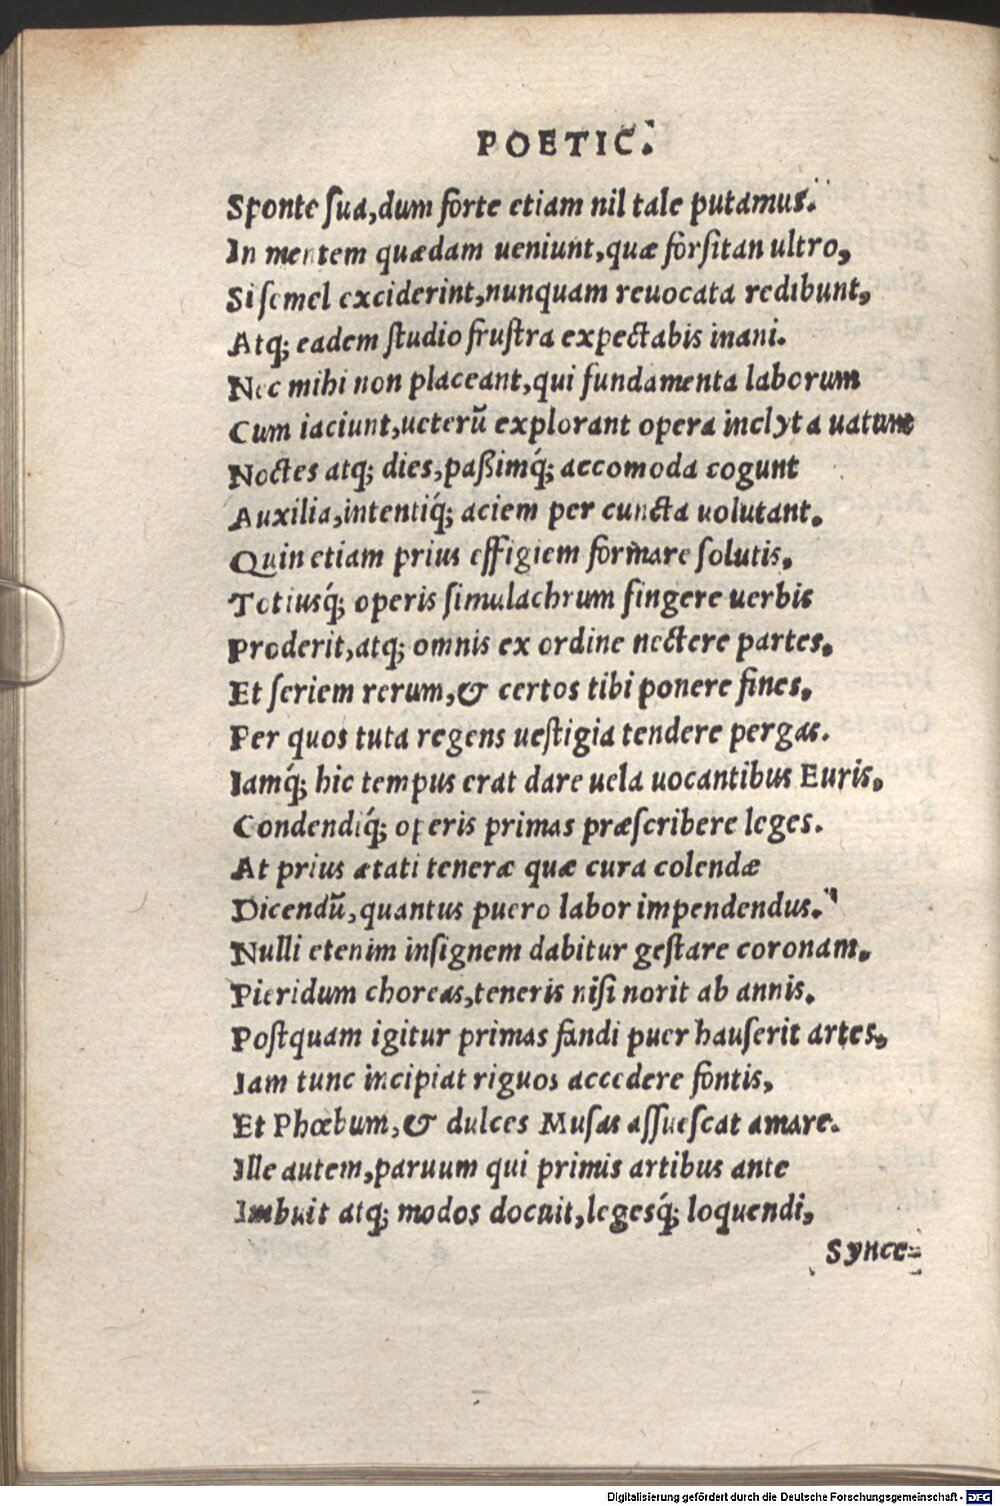 POETIC.
Sponte ſua,dum forte etiam nil tale putamus.
In mentem quædam ueniunt,quæ forſitan ultro,
Si ſemel exciderint,nunquam reuocata redibunt,
Atq; eadem ſtudio fruſtra expectabis inani.
Nec mihi non placeant,qui fundamenta laborum
Cum iaciunt,ueterũ explorant opera inclyta uatum
Noctes atq; dies,paßimq́; accomoda cogunt
Auxilia,intentiq́; aciem per cuncta uolutant.
Quin etiam prius effigiem formare ſolutis,
Totiusq́; operis ſimulachrum fingere uerbis
Proderit,atq; omnis ex ordine nectere partes.
Et ſeriem rerum,& certos tibi ponere fines,
Per quos tuta regens ueſtigia tendere pergas.
Iamq́; hic tempus erat dare uela uocantibus Euris,
Condendiq́; operis primas præſcribere leges.
At prius ætati teneræ quæ cura colendæ
Dicendũ,quantus puero labor impendendus.
Nulli etenim inſignem dabitur geſtare coronam.
Pieridum choreas,teneris niſi norit ab annis.
Poſtquam igitur primas fandi puer hauſerit artes,
Iam tunc incipiat riguos accedere fontis,
Et Phœbum,& dulces Muſas aſſueſcat amare.
Ille autem,paruum qui primis artibus ante
Imbuit atq; modos docuit,legesq́; loquendi,
Synce-
Digitalisierung gefördert durch die Deutsche Forschungsgemeinschaft - DFG